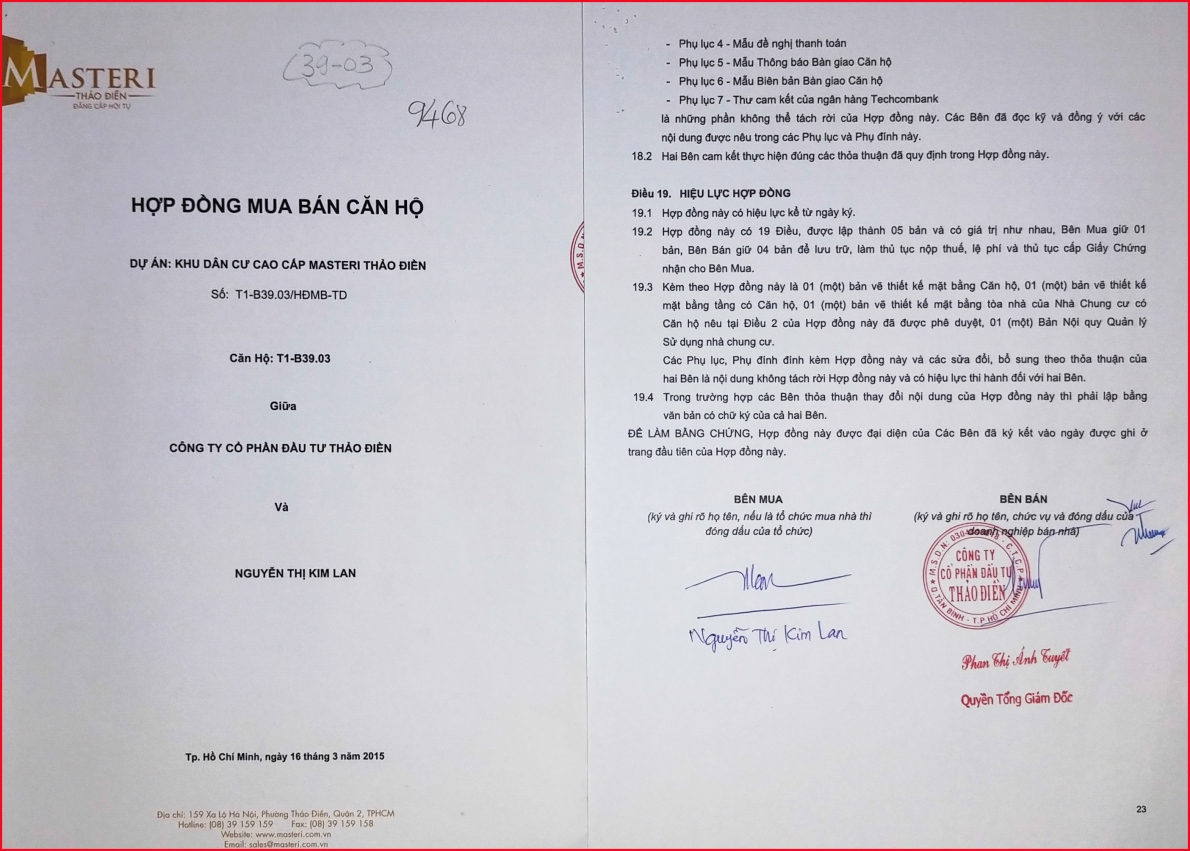 MASTERI
THẢO ĐIỀN
ĐẲNG CẤP HỘI TỤ
39-03
9468
HỢP ĐỒNG MUA BÁN CĂN HỘ
DỰ ÁN: KHU DÂN CƯ CAO CẤP MASTERI THẢO ĐIỀN
Số: T1-B39.03/HĐMB-TD
Căn Hộ: T1-B39.03
Giữa
CÔNG TY CỔ PHẦN ĐẦU TƯ THẢO ĐIỀN
Và
NGUYỄN THỊ KIM LAN
Tp. Hồ Chí Minh, ngày 16 tháng 3 năm 2015
Địa chỉ: 159 Xa Lộ Hà Nội, Phường Thảo Điền, Quận 2, TPHCM
Hotline: (08) 39 159 159 Fax: (08) 39 159 158
Website: www.masteri.com.vn
Email: sales@masteri.com.vn
M.S.D.N
- Phụ lục 4 - Mẫu đề nghị thanh toán
- Phụ lục 5 - Mẫu Thông báo Bàn giao Căn hộ
- Phụ lục 6 - Mẫu Biên bản Bàn giao Căn hộ
- Phụ lục 7 - Thư cam kết của ngân hàng Techcombank
là những phần không thể tách rời của Hợp đồng này. Các Bên đã đọc kỹ và đồng ý với các
nội dung được nêu trong các Phụ lục và Phụ đính này.
18.2 Hai Bên cam kết thực hiện đúng các thỏa thuận đã quy định trong Hợp đồng này.
Điều 19. HIỆU LỰC HỢP ĐỒNG
19.1 Hợp đồng này có hiệu lực kể từ ngày ký.
19.2 Hợp đồng này có 19 Điều, được lập thành 05 bản và có giá trị như nhau, Bên Mua giữ 01
bản, Bên Bán giữ 04 bản để lưu trữ, làm thủ tục nộp thuế, lệ phí và thủ tục cấp Giấy Chứng
nhận cho Bên Mua.
19.3 Kèm theo Hợp đồng này là 01 (một) bản vẽ thiết kế mặt bằng Căn hộ, 01 (một) bản vẽ thiết kế
mặt bằng tầng có Căn hộ, 01 (một) bản vẽ thiết kế mặt bằng tòa nhà của Nhà Chung cư có
Căn hộ nêu tại Điều 2 của Hợp đồng này đã được phê duyệt, 01 (một) Bản Nội quy Quản lý
Sử dụng nhà chung cư.
Các Phụ lục, Phụ đính đính kèm Hợp đồng này và các sửa đổi, bổ sung theo thỏa thuận của
hai Bên là nội dung không tách rời Hợp đồng này và có hiệu lực thi hành đối với hai Bên.
19.4 Trong trường hợp các Bên thỏa thuận thay đổi nội dung của Hợp đồng này thì phải lập bằng
văn bản có chữ ký của cả hai Bên.
ĐỂ LÀM BẰNG CHỨNG, Hợp đồng này được đại diện của Các Bên đã ký kết vào ngày được ghi ở
trang đầu tiên của Hợp đồng này.
BÊN MUA
(ký và ghi rõ họ tên, nếu là tổ chức mua nhà thì
đóng dấu của tổ chức)
Nguyễn Thị Kim Lan
BÊN BÁN
(ký và ghi rõ họ tên, chức vụ và đóng dấu của
doanh nghiệp bán nhà)
CÔNG TY
CỔ PHẦN ĐẦU TƯ
THẢO ĐIỀN
Q.TÂN BÌNH - T.P HỒ CHÍ MINH
Phan Thị Ánh Tuyết
Quyền Tổng Giám Đốc
23